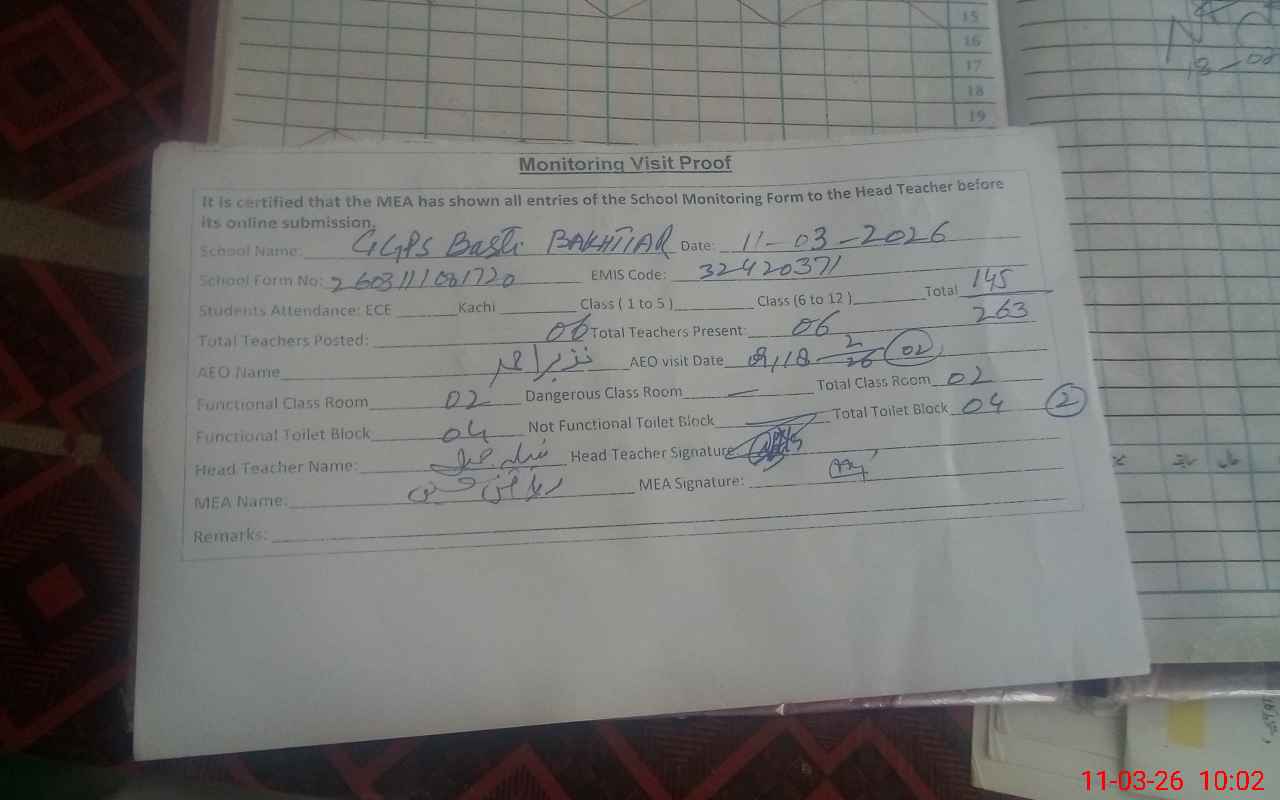 15
16
17
18
19
18-08
Monitoring Visit Proof
It is certified that the MEA has shown all entries of the School Monitoring Form to the Head Teacher before
its online submission.
School Name: GGPS Basti BAKHTIAR Date: 11-03-2026
School Form No: 2603111081720 EMIS Code: 32420371
Students Attendance: ECE Kachi Class ( 1 to 5 ) Class (6 to 12 ) Total 145
263
Total Teachers Posted: 06 Total Teachers Present: 06
AEO Name نذیر احمد AEO visit Date 2/26 02
Functional Class Room 02 Dangerous Class Room — Total Class Room 02
Functional Toilet Block 04 Not Functional Toilet Block Total Toilet Block 04 2
Head Teacher Name: Head Teacher Signature
MEA Name: ریاض حسین MEA Signature:
Remarks:
11-03-26 10:02